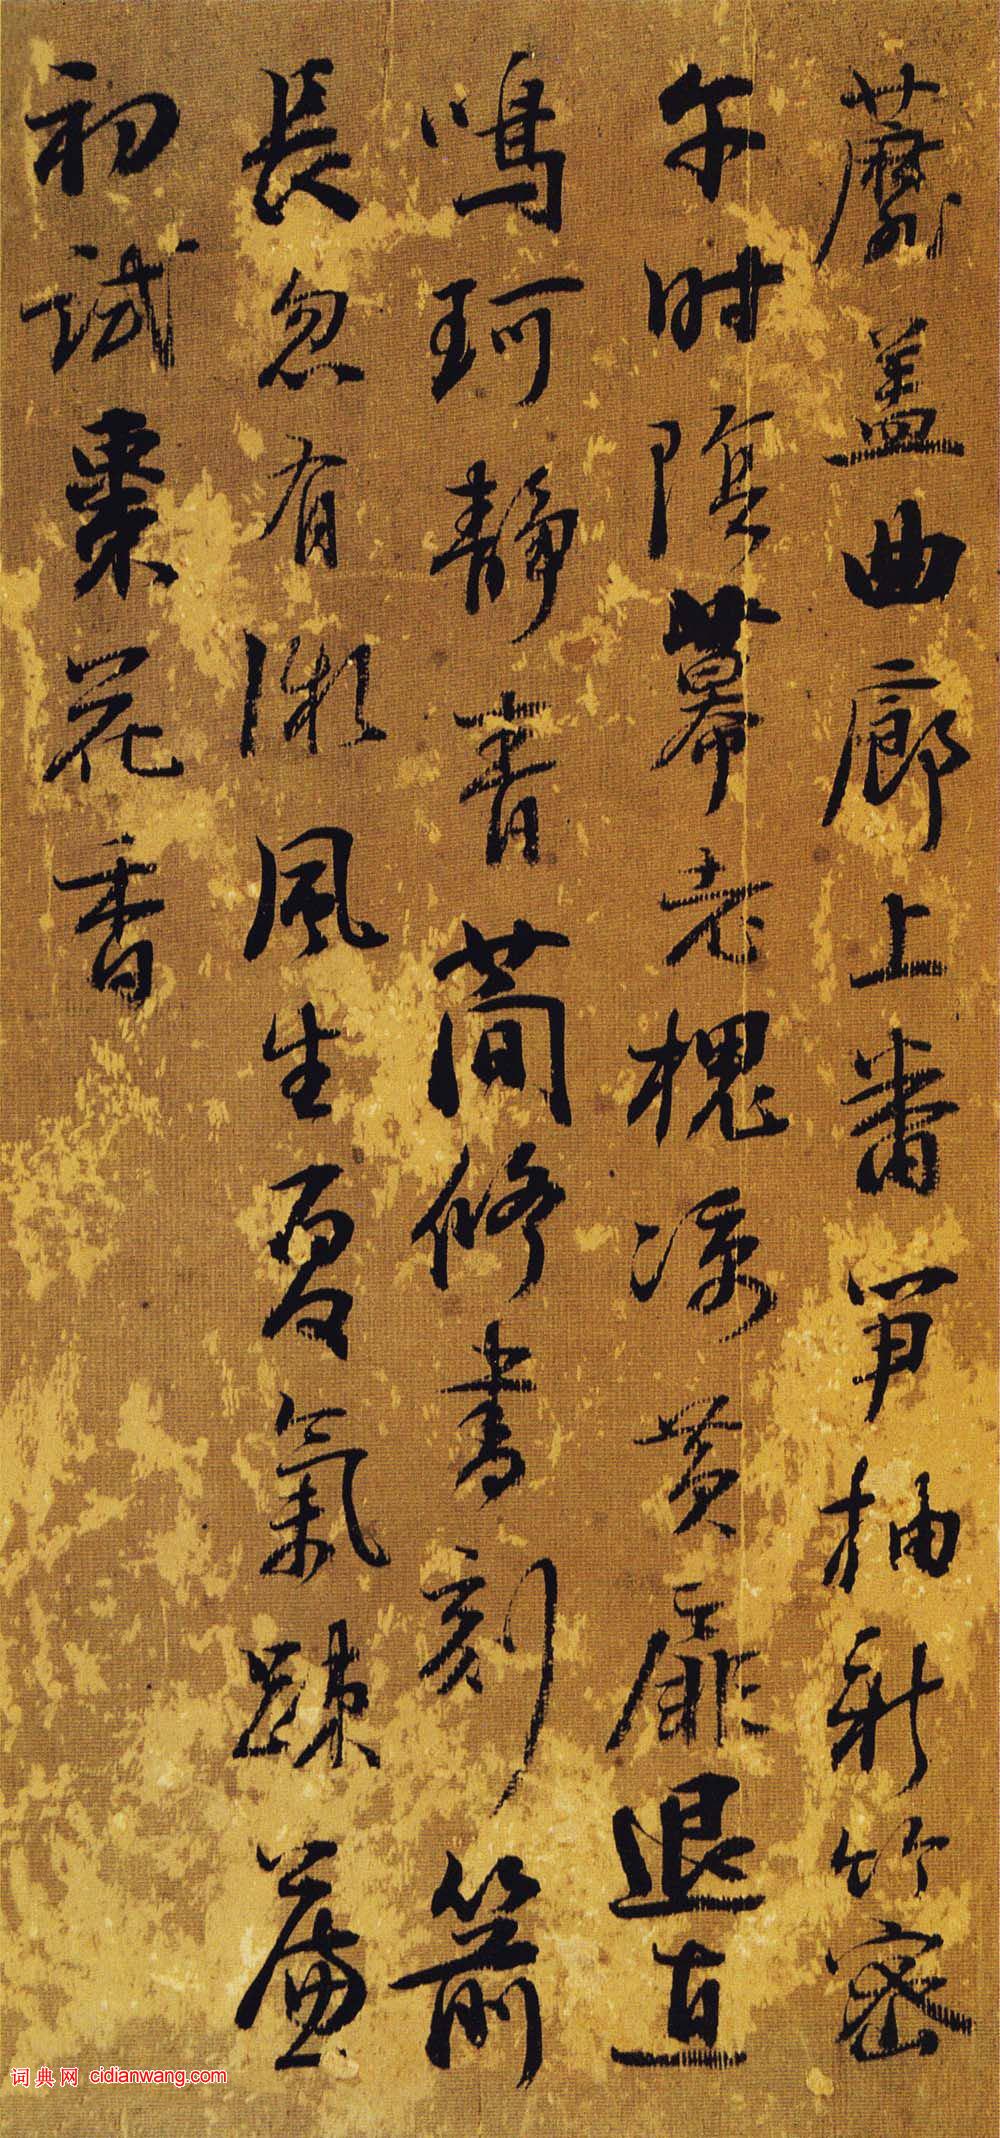 蘼盖曲廊上番笋抽新竹密
午时阴幕老槐凉黄扉退直
鳴珂静青简修書刻箭
長忽有微風生夏氣疎簾
初試棗花香
词典网 cidianwang.com